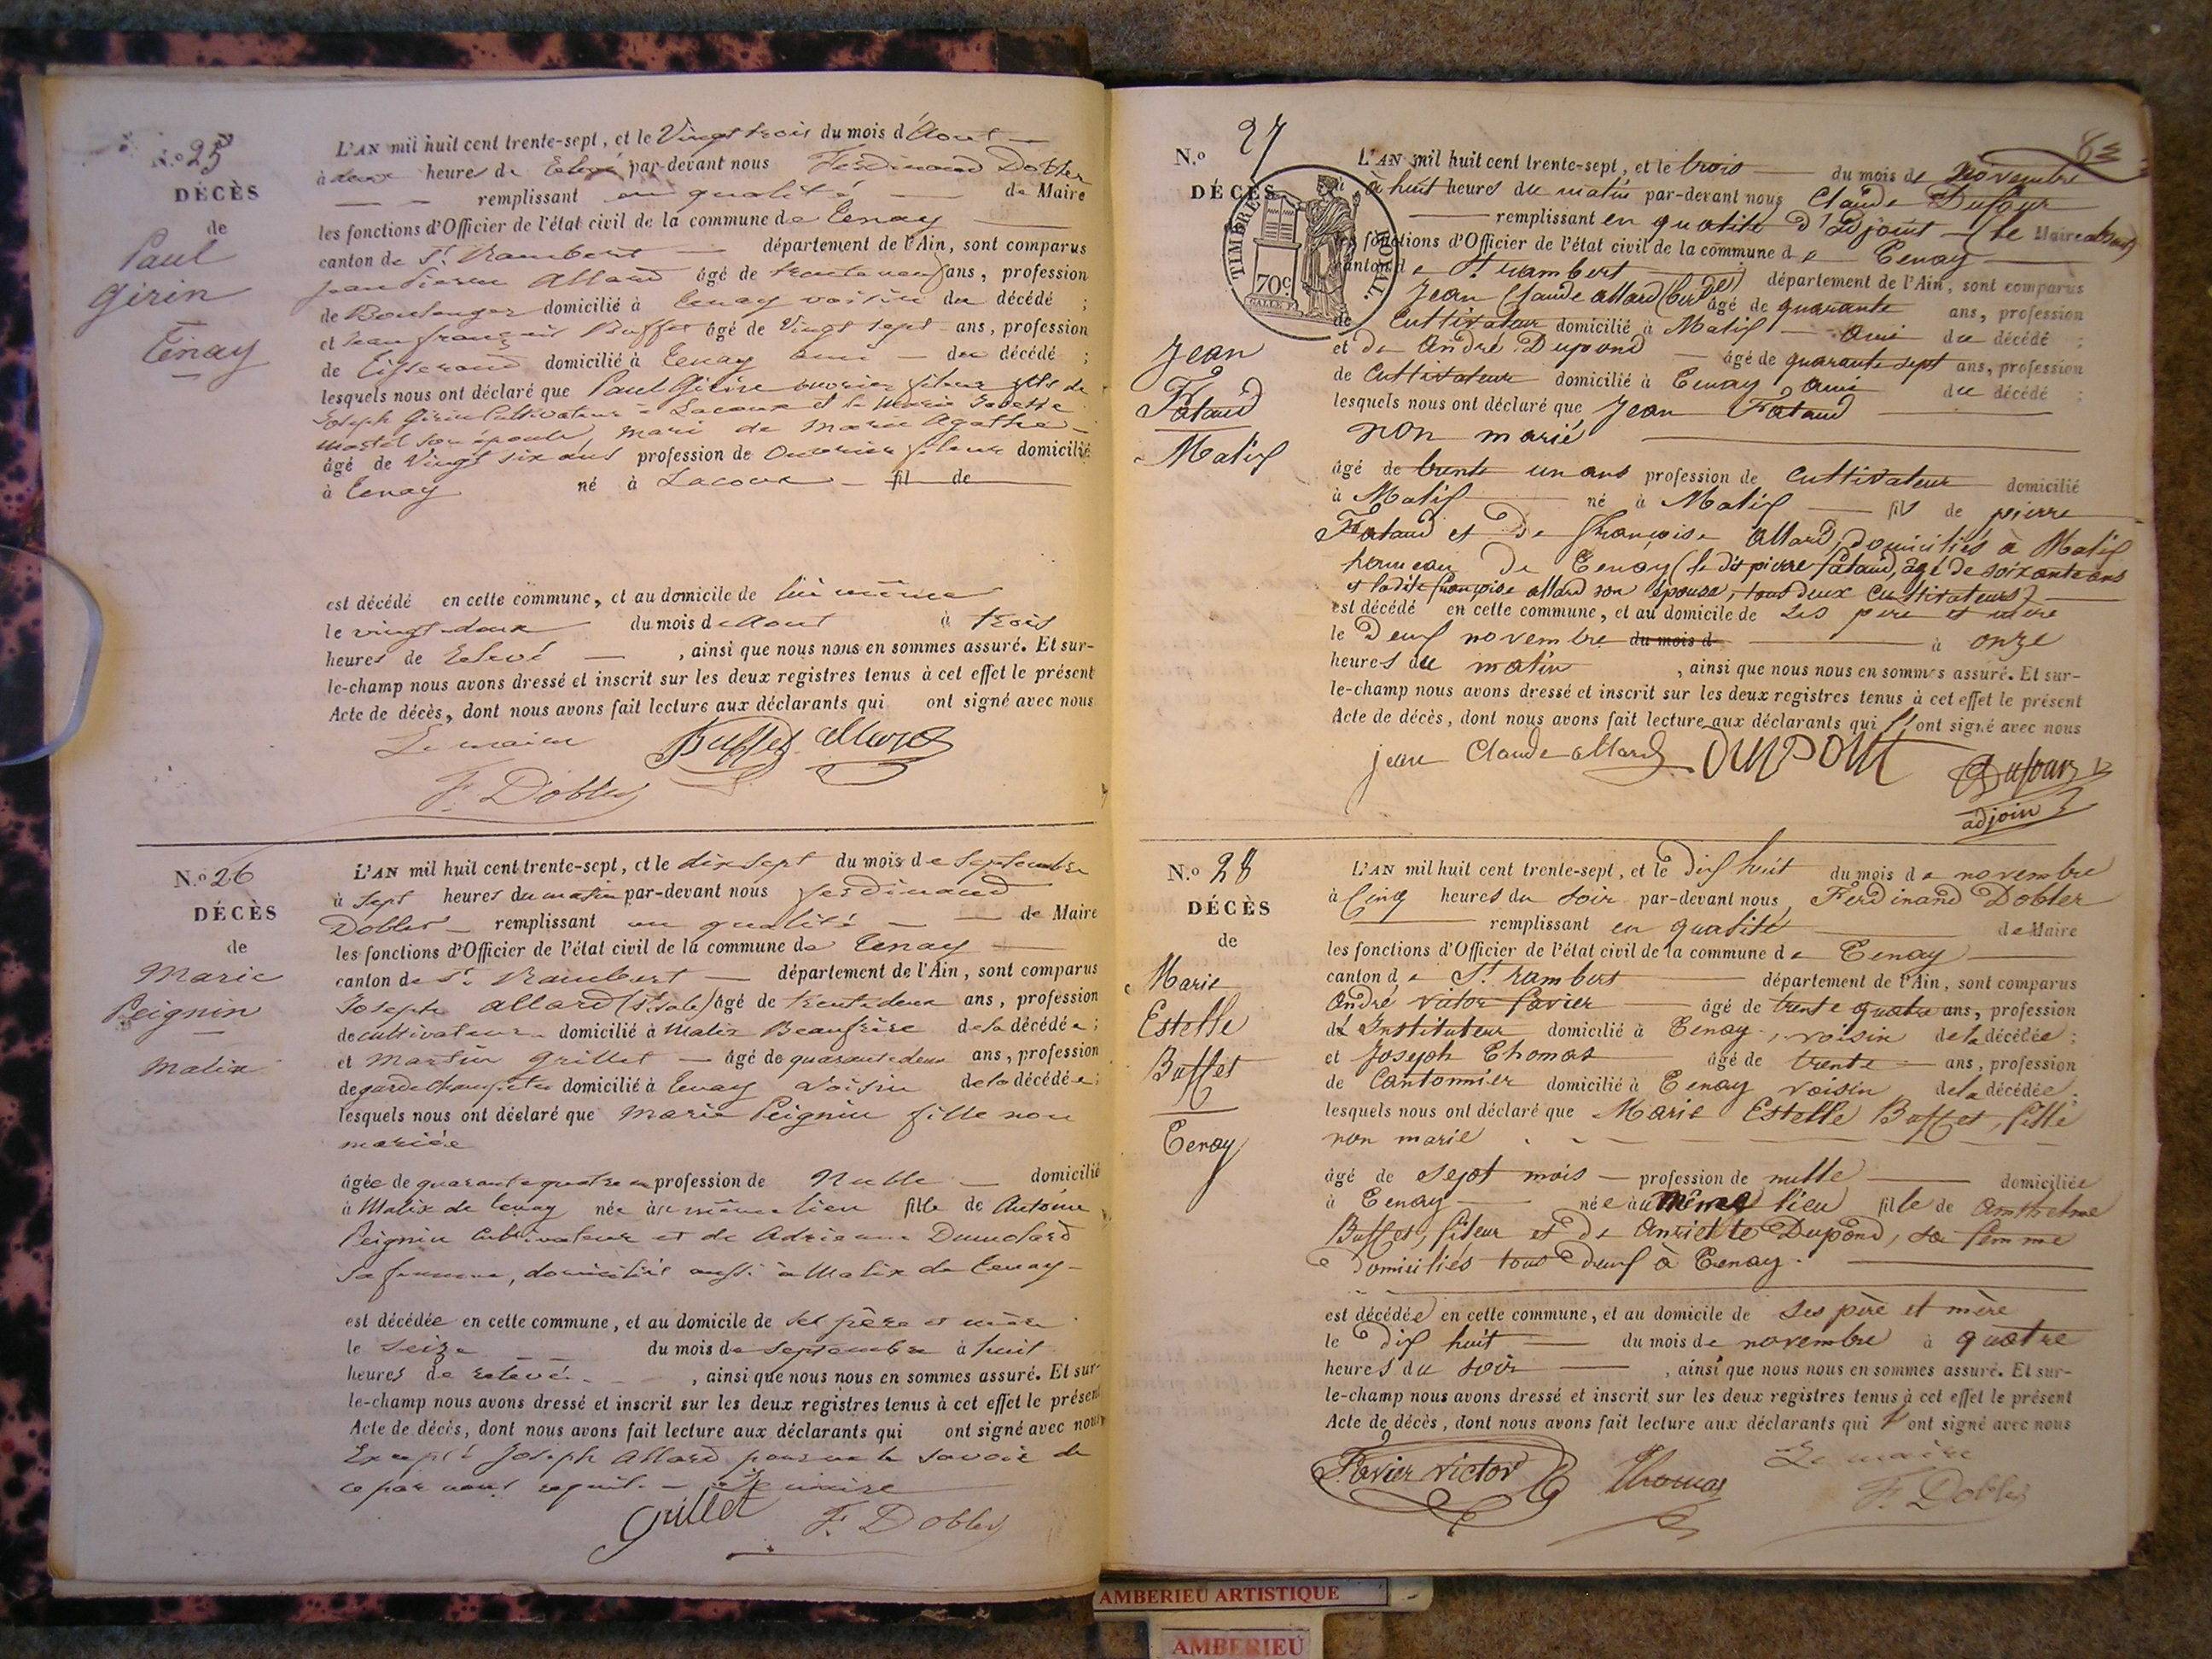 N.° 25
DÉCÈS
de
Paul
Girin
Tenay
L'AN mil huit cent trente-sept, et le Vingt trois du mois d'Aout
à deux heures de Relevé par-devant nous Ferdinand Dobler
remplissant en qualité de Maire
les fonctions d'Officier de l'état civil de la commune de Tenay
canton de St Rambert département de l'Ain, sont comparus
Jean Pierre Allard âgé de trente neuf ans, profession
de Boulanger domicilié à Tenay voisin du décédé ;
et Jean françois Buffet âgé de Vingt sept ans, profession
de Tisserand domicilié à Tenay ami du décédé ;
lesquels nous ont déclaré que Paul Girin ouvrier fileur fils de
Joseph Girin Cultivateur à Lacoux et de Marie Josette
Martel son épouse, mari de Marie Agathe
âgé de Vingt six ans profession de Ouvrier fileur domicilié
à Tenay né à Lacoux fil de
est décédé en cette commune, et au domicile de lui même
le vingt deux du mois d'Aout à trois
heures de Relevé , ainsi que nous nous en sommes assuré. Et sur-
le-champ nous avons dressé et inscrit sur les deux registres tenus à cet effet le présent
Acte de décès, dont nous avons fait lecture aux déclarants qui ont signé avec nous
Le maire Buffet allard
F. Dobler
N.° 26
DÉCÈS
de
Marie
Peignin
Matix
L'AN mil huit cent trente-sept, et le dix sept du mois de Septembre
à Sept heures du matin par-devant nous ferdinand
Dobler remplissant en qualité de Maire
les fonctions d'Officier de l'état civil de la commune de Tenay
canton de St Rambert département de l'Ain, sont comparus
Joseph allard âgé de trente deux ans, profession
de cultivateur domicilié à Matix Beaufrère de la décédée ;
et Martin Grillet âgé de quarante deux ans, profession
de garde champêtre domicilié à Tenay Voisin de la décédée ;
lesquels nous ont déclaré que Marie Peignin fille non
mariée
âgée de quarante quatre an profession de Nulle domicilié
à Matix de Tenay née au même lieu fille de Antoine
Peignin Cultivateur et de Adrienne Dumolard
Sa femme, domiciliés aussi à Matix de Tenay
est décédée en cette commune, et au domicile de ses père et mère
le Seize du mois de Septembre à huit
heures de relevé , ainsi que nous nous en sommes assuré. Et sur-
le-champ nous avons dressé et inscrit sur les deux registres tenus à cet effet le présent
Acte de décès, dont nous avons fait lecture aux déclarants qui ont signé avec nous
Excepté Joseph Allard pour ne le savoir de
ce par nous requis. Le maire
Grillet F. Dobler
N.° 27
DÉCÈS
de
Jean
Fataud
Matix
TIMBRE ROYAL.
70c
L'AN mil huit cent trente-sept, et le trois du mois de Novembre
à huit heures du matin par-devant nous Claude Dufour
remplissant en qualité d'adjoint (le Maire absent)
les fonctions d'Officier de l'état civil de la commune de Tenay
canton de St. rambert département de l'Ain, sont comparus
Jean Claude allard âgé de quarante ans, profession
de Cultivateur domicilié à Matix ami du décédé ;
et de André Dupond âgé de quarante sept ans, profession
de Cultivateur domicilié à Tenay ami du décédé ;
lesquels nous ont déclaré que Jean Fataud
non marié
âgé de trente un ans profession de Cultivateur domicilié
à Matix né à Matix fils de pierre
Fataud et de françoise allard, domiciliés à Matix
hameau de Tenay (le dit pierre fataud, âgé de soixante ans
et ladite françoise allard son épouse, tous deux cultivateurs)
est décédé en cette commune, et au domicile de ses père et mère
le Deux novembre du mois d à onze
heures du matin , ainsi que nous nous en sommes assuré. Et sur-
le-champ nous avons dressé et inscrit sur les deux registres tenus à cet effet le présent
Acte de décès, dont nous avons fait lecture aux déclarants qui ont signé avec nous
jean Claude allard DUPONt Dufour
adjoin
N.° 28
DÉCÈS
de
Marie
Estelle
Buffet
Tenay
L'AN mil huit cent trente-sept, et le Dix huit du mois de novembre
à Cinq heures du soir par-devant nous Ferdinand Dobler
remplissant en qualité de Maire
les fonctions d'Officier de l'état civil de la commune de Tenay
canton de St. rambert département de l'Ain, sont comparus
André victor favier âgé de trente quatre ans, profession
de Instituteur domicilié à Tenay, voisin de la décédée ;
et Joseph Thomas âgé de trente ans, profession
de Cantonnier domicilié à Tenay voisin de la décédée ;
lesquels nous ont déclaré que Marie Estelle Buffet, fille
non marié
âgé de sept mois profession de nulle domiciliée
à Tenay née au même lieu fille de Anthelme
Buffet, fileur et de Anriette Dupond, sa femme
domiciliés tous deux à Tenay.
est décédée en cette commune, et au domicile de ses père et mère
le Dix huit du mois de novembre à quatre
heures du soir , ainsi que nous nous en sommes assuré. Et sur-
le-champ nous avons dressé et inscrit sur les deux registres tenus à cet effet le présent
Acte de décès, dont nous avons fait lecture aux déclarants qui ont signé avec nous
Favier victor Thomas Le maire
F. Dobler
AMBERIEU ARTISTIQUE
AMBERIEU